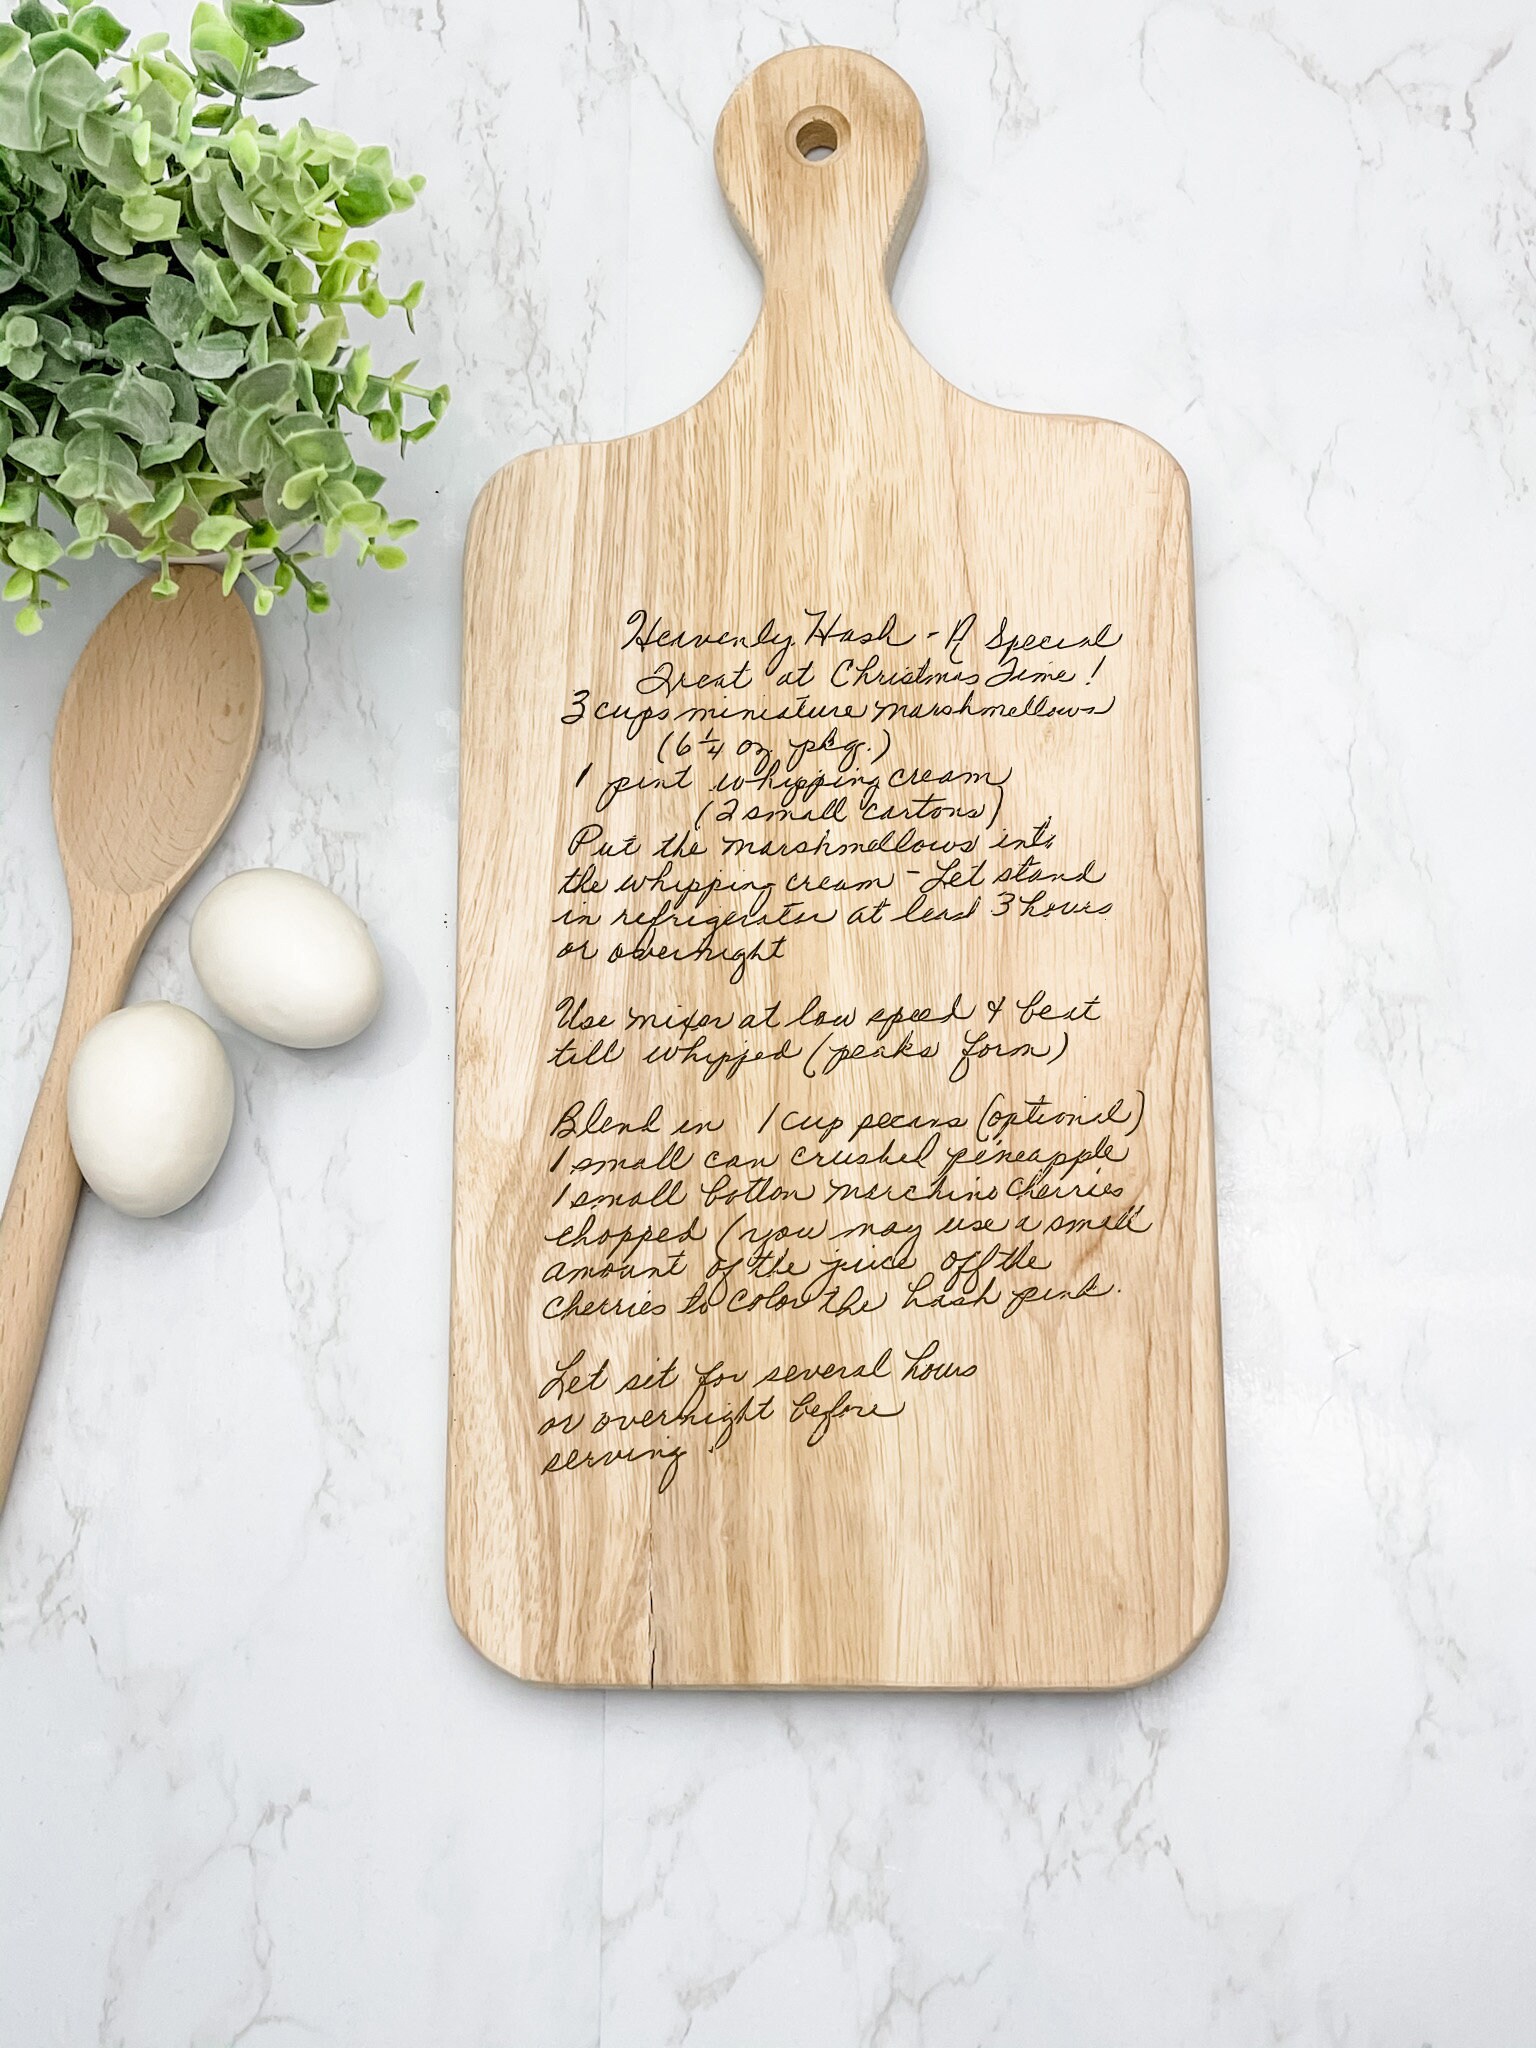 Heavenly Hash - A Special
Treat at Christmas Time!
3 cups miniature marshmellows
(6 1/4 oz pkg.)
1 pint whipping cream
(2 small cartons)
Put the marshmellows into
the whipping cream - Let stand
in refrigerator at least 3 hours
or overnight
Use mixer at low speed & beat
till whipped (peaks form)
Blend in 1 cup pecans (optional)
1 small can crushed pineapple
1 small cherries
chopped (you may use a small
amount of the juice off the
cherries to color the hash pink.
Let sit for several hours
or overnight before
serving.